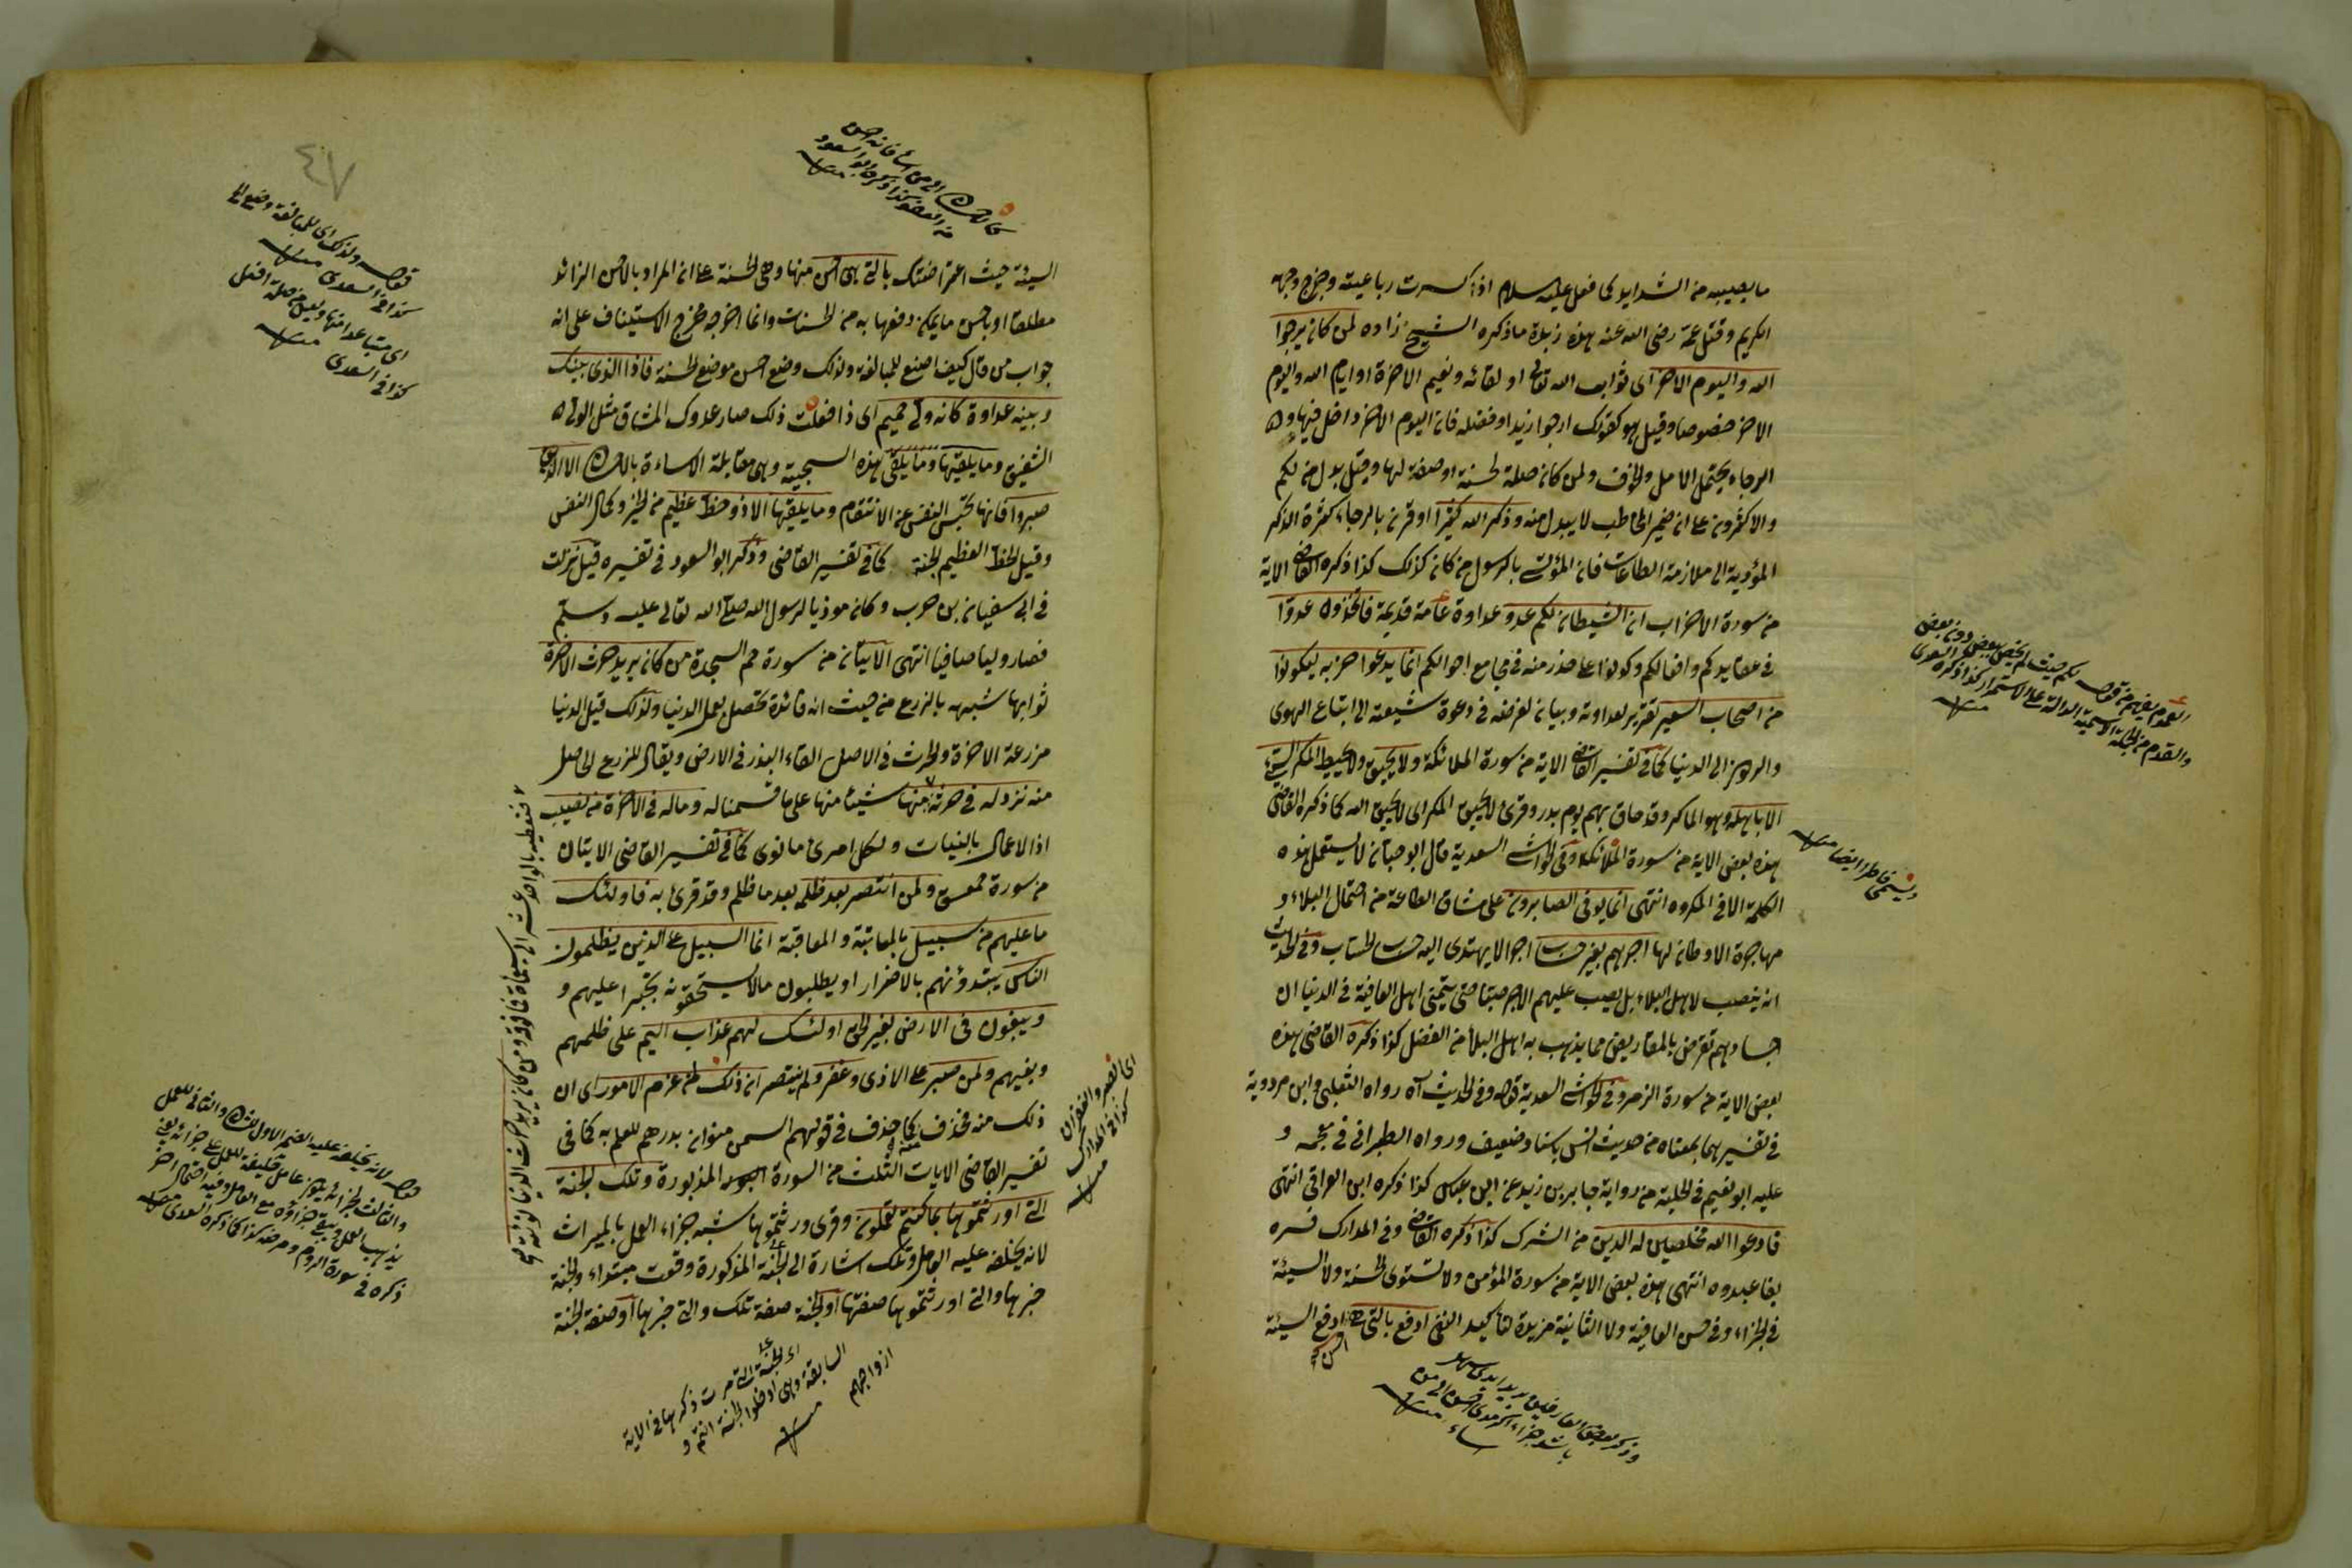 ما يصيبه من الشدايد كما فعل عليه السلام اذا كسرت رباعيته وجرح وجهه
الكريم وقتل عمه رضى الله عنه هذه زبدة ما ذكره الشيخ زاده لمن كان يرجوا
الله واليوم الاخر اى ثواب الله تعالى او لقائه ونعيم الاخرة او ايام الله واليوم
الاخر خصوصا وقيل هو كقولك ارجوا زيدا وفضله فان اليوم الاخر داخل فيها و
الرجاء يحتمل الامل والخوف ولمن كان صلة لحسنة او صفة لها وقيل بدل من لكم
والاكثرون على ان ضمير المخاطب لا يبدل منه وذكر الله كثيرا وقرن بالرجاء كثرة الذكر
المؤدية الى ملازمة الطاعات فان المؤتسى بالرسول من كان كذلك كذا ذكره القاضى الاية
من سورة الاحزاب ان الشيطان لكم عدو عداوة عامة قديمة فاتخذوه عدوا
فى عقايدكم وافعالكم وكونوا على حذر منه فى مجامع احوالكم انما يدعوا حزبه ليكونوا
من اصحاب السعير تقرير لعداوته وبيان لغرضه فى دعوة شيعته الى اتباع الهوى
والركون الى الدنيا كما فى تفسير القاضى الاية من سورة الملائكة ولا يحيق ولا يحيط المكر السيئ
الا باهله وهو الماكر وقد حاق بهم يوم بدر وقرئ لا يحيق المكر اى لا يحيق الله كما ذكره القاضى
هذه بعض الاية من سورة الملائكة وفى الحواشى السعدية قال ابو حيان لا يستعمل هذه
الكلمة الا فى المكروه انتهى انما يوفى الصابرون على مشاق الطاعة من احتمال البلاء و
مهاجرة الاوطان لها اجرهم بغير حساب اجرا لا يهتدى اليه حساب الحساب وفى الحديث
انه ينصب لاهل البلاء بل يصب عليهم الاجر صبا حتى يتمنى اهل العافية فى الدنيا ان
اجسادهم تقرض بالمقاريض مما يذهب به اهل البلاء من الفضل كذا ذكره القاضى هذه
بعض الاية من سورة الزمر وفى الحواشى السعدية قوله وفى الحديث آه رواه الثعلبى وابن مردوية
فى تفسيرهما بمعناه من حديث انس باسناد ضعيف ورواه الطبرانى فى معجمه و
عليه ابو نعيم فى الحلية من رواية جابر بن زيد عن ابن عباس كذا ذكره ابن العراقى انتهى
فادعوا الله مخلصين له الدين من الشرك كذا ذكره القاضى وفى المدارك فسره
بفاعبدوه انتهى هذه بعض الاية من سورة المؤمن ولا تستوى الحسنة ولا السيئة
فى الجزاء وفى حسن العاقبة ولا الثانية مزيدة لتأكيد النفى ادفع بالتى هى احسن ادفع السيئة
العموم يفهم من قوله لكم حيث لم يختص ببعض دون بعض
والقدم من الجملة الاسمية الدالة على الاستمرار كذا ذكره السعدى
منه
ويسمى فاطر ايضا منه
٤٧
السيئة حيث اعترضتك بالتى هى احسن منها وهى الحسنة على ان المراد بالاحسن الزائد
مطلقا او باحسن ما يمكن دفعها به من الحسنات وانما اخرجه مخرج الاستيناف على انه
جواب من قال كيف اصنع للمبالغة ولذلك وضع احسن موضع الحسنة فاذا الذى بينك
وبينه عداوة كانه ولى حميم اى اذا فعلت ذلك صار عدوك المشاق مثل الولى
الشفيق وما يلقيها وما يلقى هذه السجية وهى مقابلة الاساءة بالاحسان الا الذين
صبروا فانها تحبس النفس عن الانتقام وما يلقيها الا ذو حظ عظيم من الخير وكمال النفس
وقيل الحظ العظيم الجنة كما فى تفسير القاضى وذكر ابو السعود فى تفسيره قيل نزلت
فى ابى سفيان بن حرب وكان موذيا لرسول الله صلى الله تعالى عليه وسلم
فصار وليا صافيا انتهى الايتان من سورة حم السجدة من كان يريد حرث الاخرة
ثوابها شبهه بالزرع من حيث انه فائدة تحصل بعمل الدنيا ولذلك قيل الدنيا
مزرعة الاخرة والحرث فى الاصل القاء البذر فى الارض ويقال للزرع الحاصل
منه نزد له فى حرثه منها شيئا منها على ما قسمنا له وما له فى الاخرة من نصيب
اذ الاعمال بالنيات ولكل امرئ ما نوى كما فى تفسير القاضى الايتان
من سورة حمعسق ولمن انتصر بعد ظلمه بعد ما ظلم وقد قرئ به فاولئك
ما عليهم من سبيل بالمعاتبة والمعاقبة انما السبيل على الذين يظلمون
الناس يبتدؤنهم بالاضرار او يطلبون ما لا يستحقونه تجبرا عليهم و
ويبغون فى الارض بغير الحق اولئك لهم عذاب اليم على ظلمهم
وبغيهم ولمن صبر على الاذى وغفر ولم ينتصر ان ذلك لمن عزم الامور اى ان
ذلك منه فحذف كما حذف فى قولهم السمن منوان بدرهم للعلم به كما فى
تفسير القاضى الايات الثلث من السورة المذبورة وتلك الجنة
التى اورثتموها بما كنتم تعملون وقرئ ورثتموها شبه جزاء العمل بالميراث
لانه يخلفه عليه العامل وتلك اشارة الى الجنة المذكورة وقعت مبتداء والجنة
خبرها والتى اورثتموها صفتها او الجنة صفة تلك والتى خبرها او صفة الجنة
قوله ولذلك اى للمبالغة وضع الخ
كذا فى السعدى منه
كذا فى السعدى منه
اى الصبر والغفران
كذا فى المدارك
منه
اى الجنة التى مرت ذكرها فى الاية
السابقة وهى ادخلوا الجنة انتم و
ازواجهم
منه